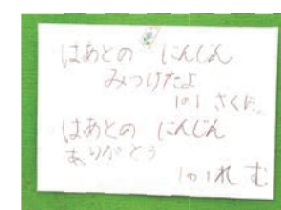 はあとの にんじん
みつけたよ
1の1 さくた
はあとの にんじん
ありがとう
1の1 れむ